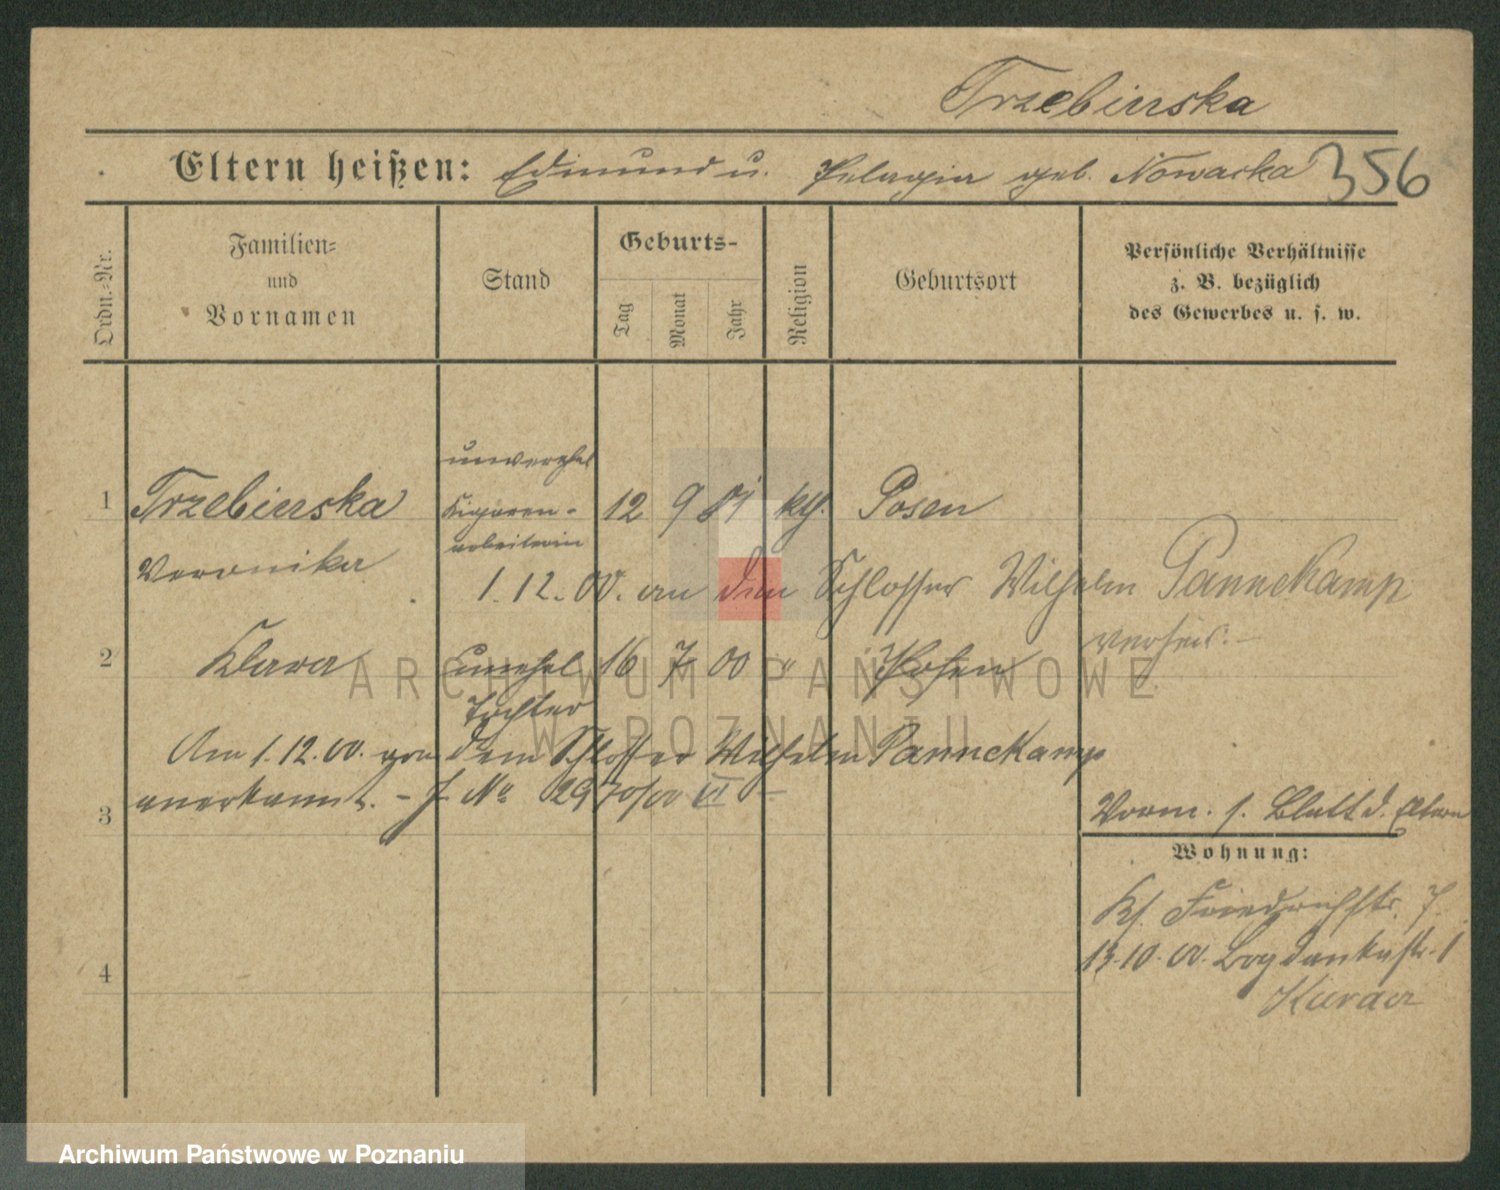 Trzebinska
Eltern heißen: Edmund u. Pelagia geb. Nowacka 356
Ordn.-Nr.
Familien-
und
Vornamen
Stand
Geburts-
Tag
Monat
Jahr
Religion
Geburtsort
Persönliche Verhältnisse
z. B. bezüglich
des Gewerbes u. s. w.
unverehel
1 Trzebinska Cigarren- 12 9 81 kth. Posen
Veronika arbeiterin
1.12.00. an den Schlosser Wilhelm Pannekamp
verheir.
2 Klara unehel 16 7 00 " Posen
Tochter
Am 1.12.00. von dem Schlosser Wilhelm Pannekamp
anerkannt. - J. No 2970/00 VI -
3
Vorm. s. Blatt d. Eltern
Wohnung:
Kl. Friedrichstr. 7
13.10.00. Bogdankastr. 1
4
ARCHIWUM PAŃSTWOWE
W POZNANIU
Archiwum Państwowe w Poznaniu